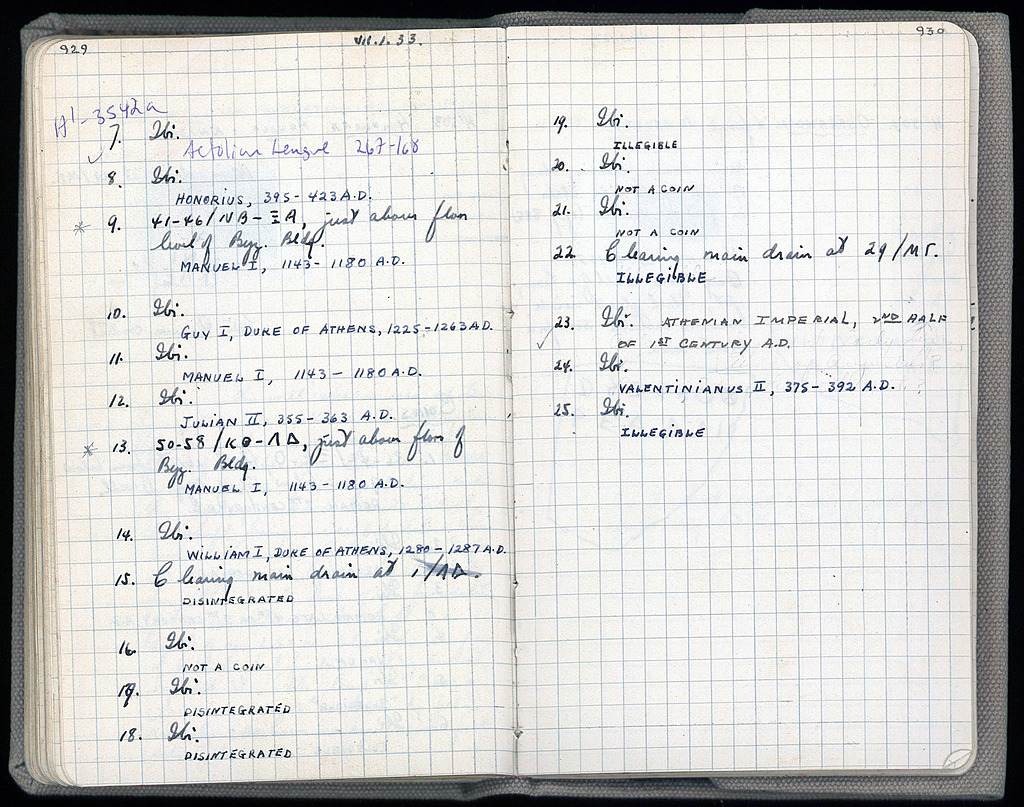 929
VII.1.33.
H'-3542a
7. Ibi.
Aetolian League 267-168
8. Ibi.
HONORIUS, 395-423 A.D.
* 9. 41-46/NB-ΞA, just above floor
level of Byz. Bldg.
MANUEL I, 1143-1180 A.D.
10. Ibi.
GUY I, DUKE OF ATHENS, 1225-1263 A.D.
11. Ibi.
MANUEL I, 1143-1180 A.D.
12. Ibi.
JULIAN II, 355-363 A.D.
* 13. 50-58/KΘ-ΛΔ, just above floor of
Byz. Bldg.
MANUEL I, 1143-1180 A.D.
14. Ibi.
WILLIAM I, DUKE OF ATHENS, 1280-1287 A.D.
15. Clearing main drain at
DISINTEGRATED
16. Ibi.
NOT A COIN
17. Ibi.
DISINTEGRATED
18. Ibi.
DISINTEGRATED
930
19. Ibi.
ILLEGIBLE
20. Ibi.
NOT A COIN
21. Ibi.
NOT A COIN
22. Clearing main drain at 29/ΜΓ.
ILLEGIBLE
23. Ibi. ATHENIAN IMPERIAL, 2ND HALF
OF 1ST CENTURY A.D.
24. Ibi.
VALENTINIANUS II, 375-392 A.D.
25. Ibi.
ILLEGIBLE